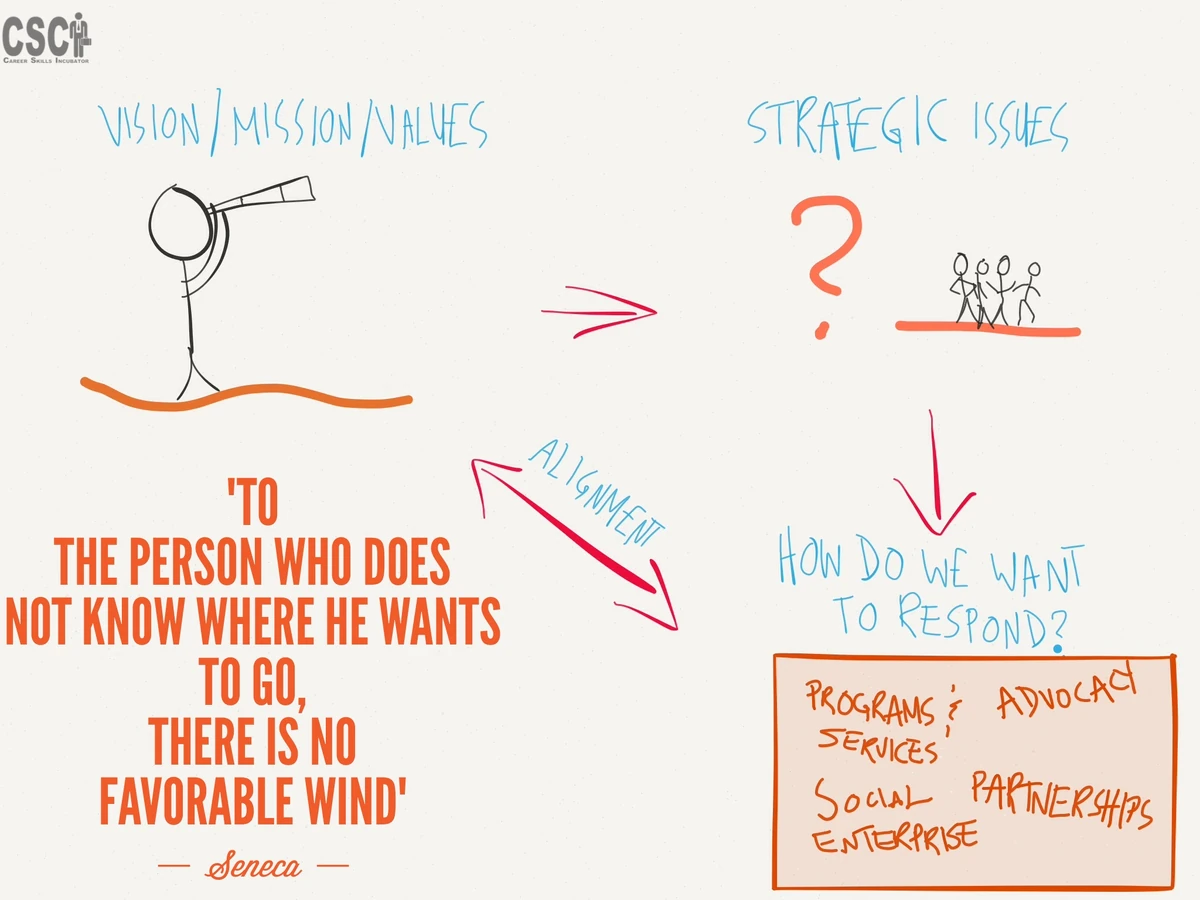 CSC
CAREER SKILLS INCUBATOR
VISION/MISSION/VALUES
STRATEGIC ISSUES
?
ALIGNMENT
'TO
THE PERSON WHO DOES
NOT KNOW WHERE HE WANTS
TO GO,
THERE IS NO
FAVORABLE WIND'
— Seneca —
HOW DO WE WANT
TO RESPOND?
PROGRAMS &
SERVICES
ADVOCACY
SOCIAL
ENTERPRISE
PARTNERSHIPS